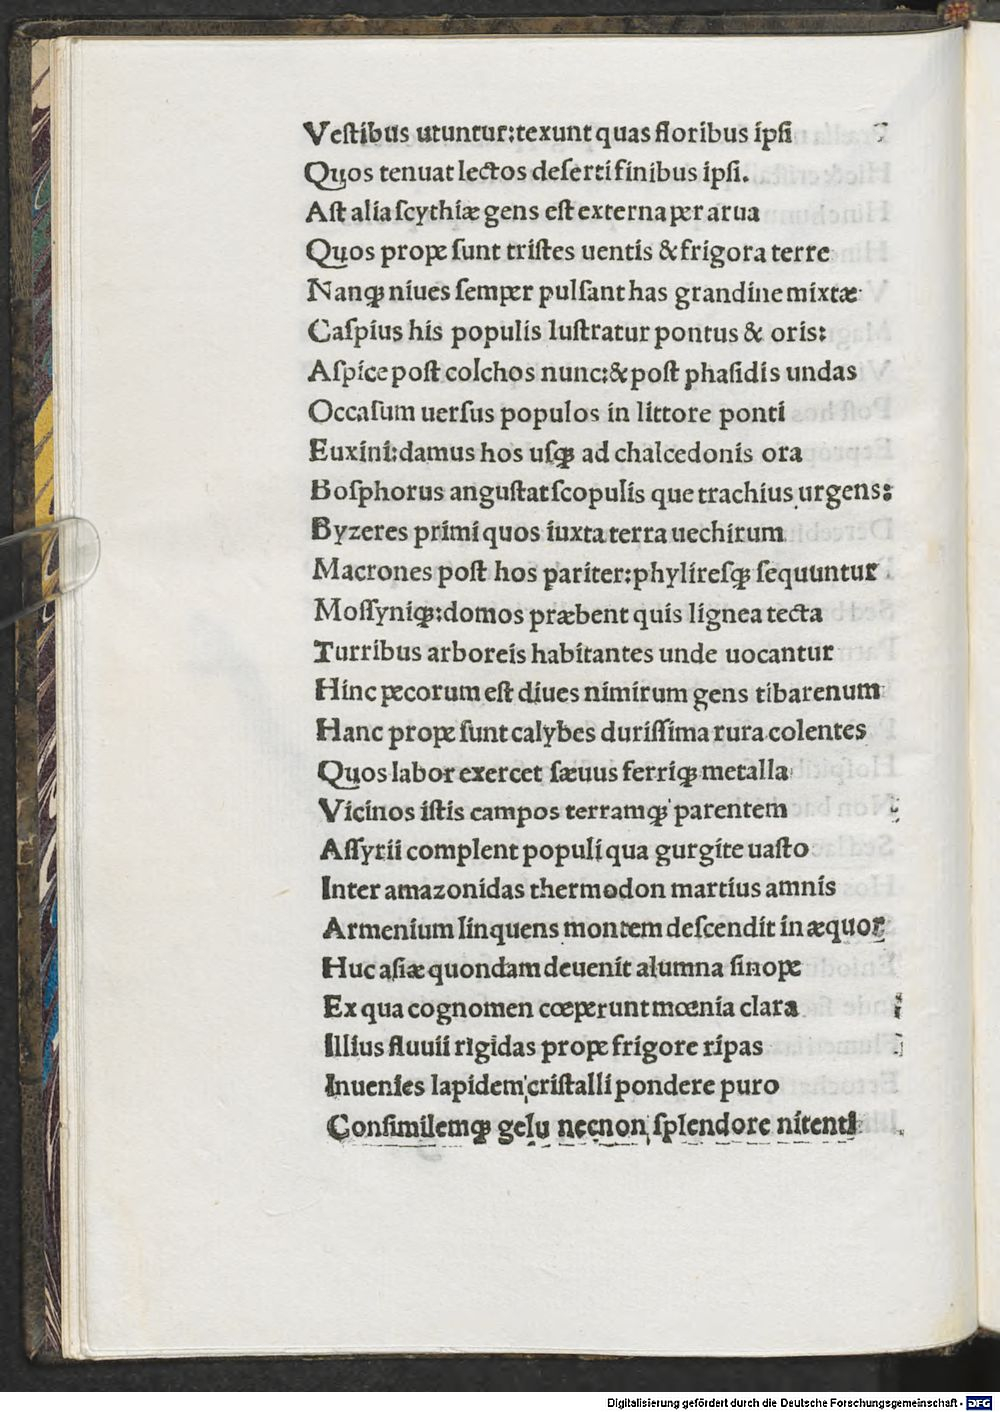 Veſtibus utuntur:texunt quas floribus ipſi
Quos tenuat lectos deſerti finibus ipſi.
Aſt alia ſcythiæ gens eſt externa per arua
Quos prope ſunt triſtes uentis & frigora terre
Nanqꝫ niues ſemper pulſant has grandine mixtæ
Caſpius his populis luſtratur pontus & oris:
Aſpice poſt colchos nunc:& poſt phaſidis undas
Occaſum uerſus populos in littore ponti
Euxini:damus hos uſqꝫ ad chalcedonis ora
Boſphorus anguſtat ſcopulis que trachius urgens:
Byzeres primi quos iuxta terra uechirum
Macrones poſt hos pariter:phylireſqꝫ ſequuntur
Moſſyniqꝫ:domos præbent quis lignea tecta
Turribus arboreis habitantes unde uocantur
Hinc pecorum eſt diues nimirum gens tibarenum
Hanc prope ſunt calybes duriſſima rura colentes
Quos labor exercet ſæuus ferriqꝫ metalla
Vicinos iſtis campos terramqꝫ parentem
Aſſyrii complent populi qua gurgite uaſto
Inter amazonidas thermodon martius amnis
Armenium linquens montem deſcendit in æquor
Huc aſiæ quondam deuenit alumna ſinope
Ex qua cognomen cœperunt mœnia clara
Illius fluuii rigidas prope frigore ripas
Inuenies lapidem criſtalli pondere puro
Conſimilemqꝫ gelu necnon ſplendore nitenti
Digitalisierung gefördert durch die Deutsche Forschungsgemeinschaft - DFG